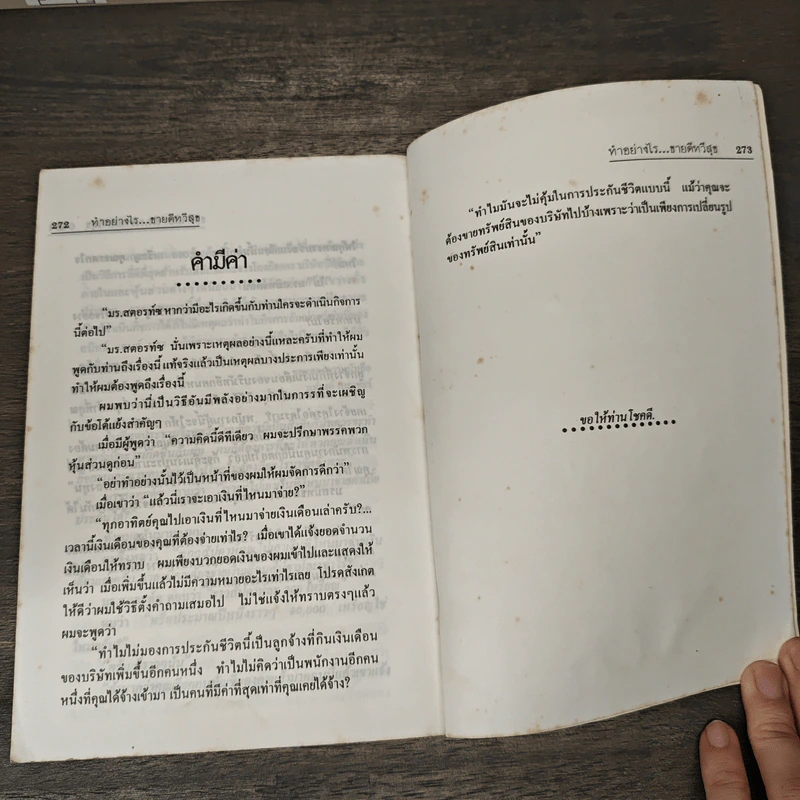 272 ทำอย่างไร...ขายดีทวีสุข
คำมีค่า
“มร.สตอรท์ซ หากว่ามีอะไรเกิดขึ้นกับท่านใครจะดำเนินกิจการ
นี้ต่อไป”
“มร.สตอรท์ซ นั่นเพราะเหตุผลอย่างนี้แหละครับที่ทำให้ผม
พูดกับท่านถึงเรื่องนี้ แท้จริงแล้วเป็นเหตุผลบางประการเพียงเท่านั้น
ทำให้ผมต้องพูดถึงเรื่องนี้
ผมพบว่านี่เป็นวิธีอันมีพลังอย่างมากในการรที่จะเผชิญ
กับข้อโต้แย้งสำคัญๆ
เมื่อมีผู้พูดว่า “ความคิดนี้ดีทีเดียว ผมจะปรึกษาพรรคพวก
หุ้นส่วนดูก่อน”
“อย่าทำอย่างนั้นไว้เป็นหน้าที่ของผมให้ผมจัดการดีกว่า”
เมื่อเขาว่า “แล้วนี่เราจะเอาเงินที่ไหนมาจ่าย?”
“ทุกอาทิตย์คุณไปเอาเงินที่ไหนมาจ่ายเงินเดือนเล่าครับ?...
เวลานี้เงินเดือนของคุณที่ต้องจ่ายเท่าไร? เมื่อเขาได้แจ้งยอดจำนวน
เงินเดือนให้ทราบ ผมเพียงบวกยอดเงินของผมเข้าไปและแสดงให้
เห็นว่า เมื่อเพิ่มขึ้นแล้วไม่มีความหมายอะไรเท่าไรเลย โปรดสังเกต
ให้ดีว่าผมใช้วิธีตั้งคำถามเสมอไป ไม่ใช่แจ้งให้ทราบตรงๆแล้ว
ผมจะพูดว่า
“ทำไมไม่มองการประกันชีวิตนี้เป็นลูกจ้างที่กินเงินเดือน
ของบริษัทเพิ่มขึ้นอีกคนหนึ่ง ทำไมไม่คิดว่าเป็นพนักงานอีกคน
หนึ่งที่คุณได้จ้างเข้ามา เป็นคนที่มีค่าที่สุดเท่าที่คุณเคยได้จ้าง?
ทำอย่างไร...ขายดีทวีสุข 273
“ทำไมมันจะไม่คุ้มในการประกันชีวิตแบบนี้ แม้ว่าคุณจะ
ต้องขายทรัพย์สินของบริษัทไปบ้างเพราะว่าเป็นเพียงการเปลี่ยนรูป
ของทรัพย์สินเท่านั้น”
ขอให้ท่านโชคดี.